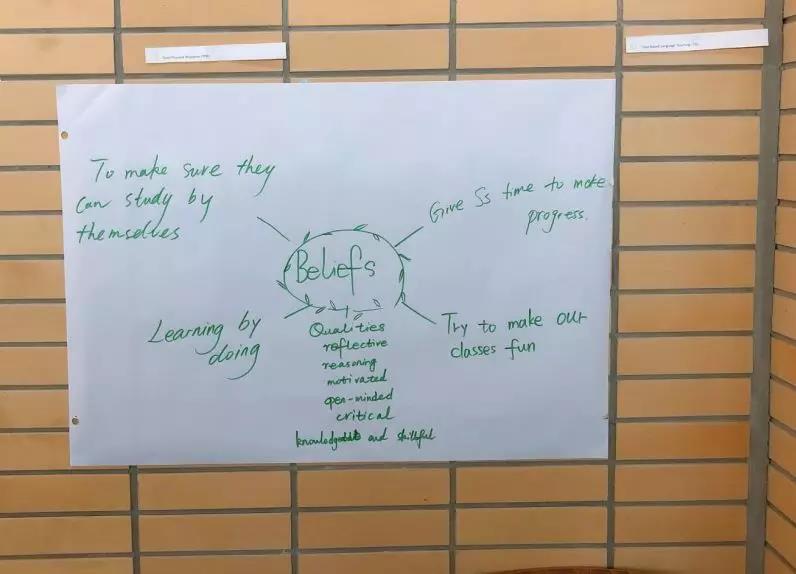 Total Physical Response (TPR)
Task Based Language Teaching
To make sure they
can study by
themselves
Give Ss time to make
progress.
Beliefs
Learning by
doing
Try to make our
classes fun
Qualities
reflective
reasoning
motivated
open-minded
critical
and skillful